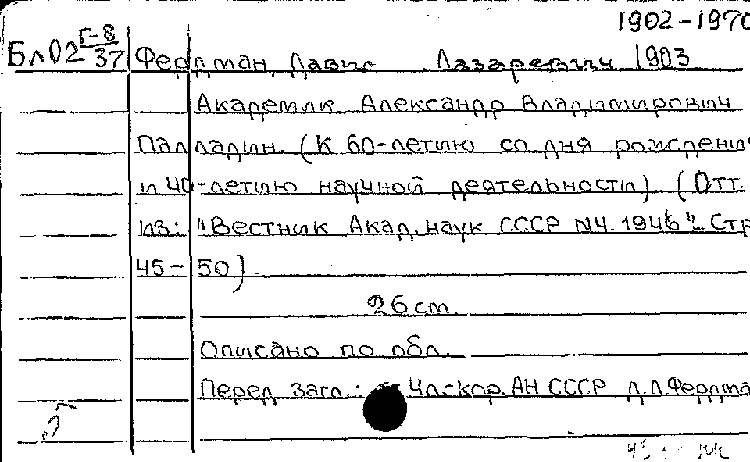 1902-1970
Бл02 Г-8/37 Фердман, Давид Лазаревич 1903
Академик Александр Владимирович
Палладин. (К 60-летию со дня рождения
и 40-летию научной деятельности) (Отт.
из: "Вестник Акад. наук СССР №4. 1946". Стр
45-50)
26 см.
Описано по обл.
Перед загл.: Чл.-кор. АН СССР Д.Л. Фердма